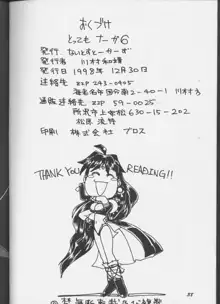 おくづけ
とっても ナーガ6
発行 ないとすとーかーず
発行者 川村和綺
発行日 1998年 12月30日
連絡先 〒 243-0405
海老名市国分南2-40-1 川村方
通販連絡先 〒 359-0025
所沢市上安松630-15-202
松原 方
印刷 株式会社 プロス
THANK YOU READING!!